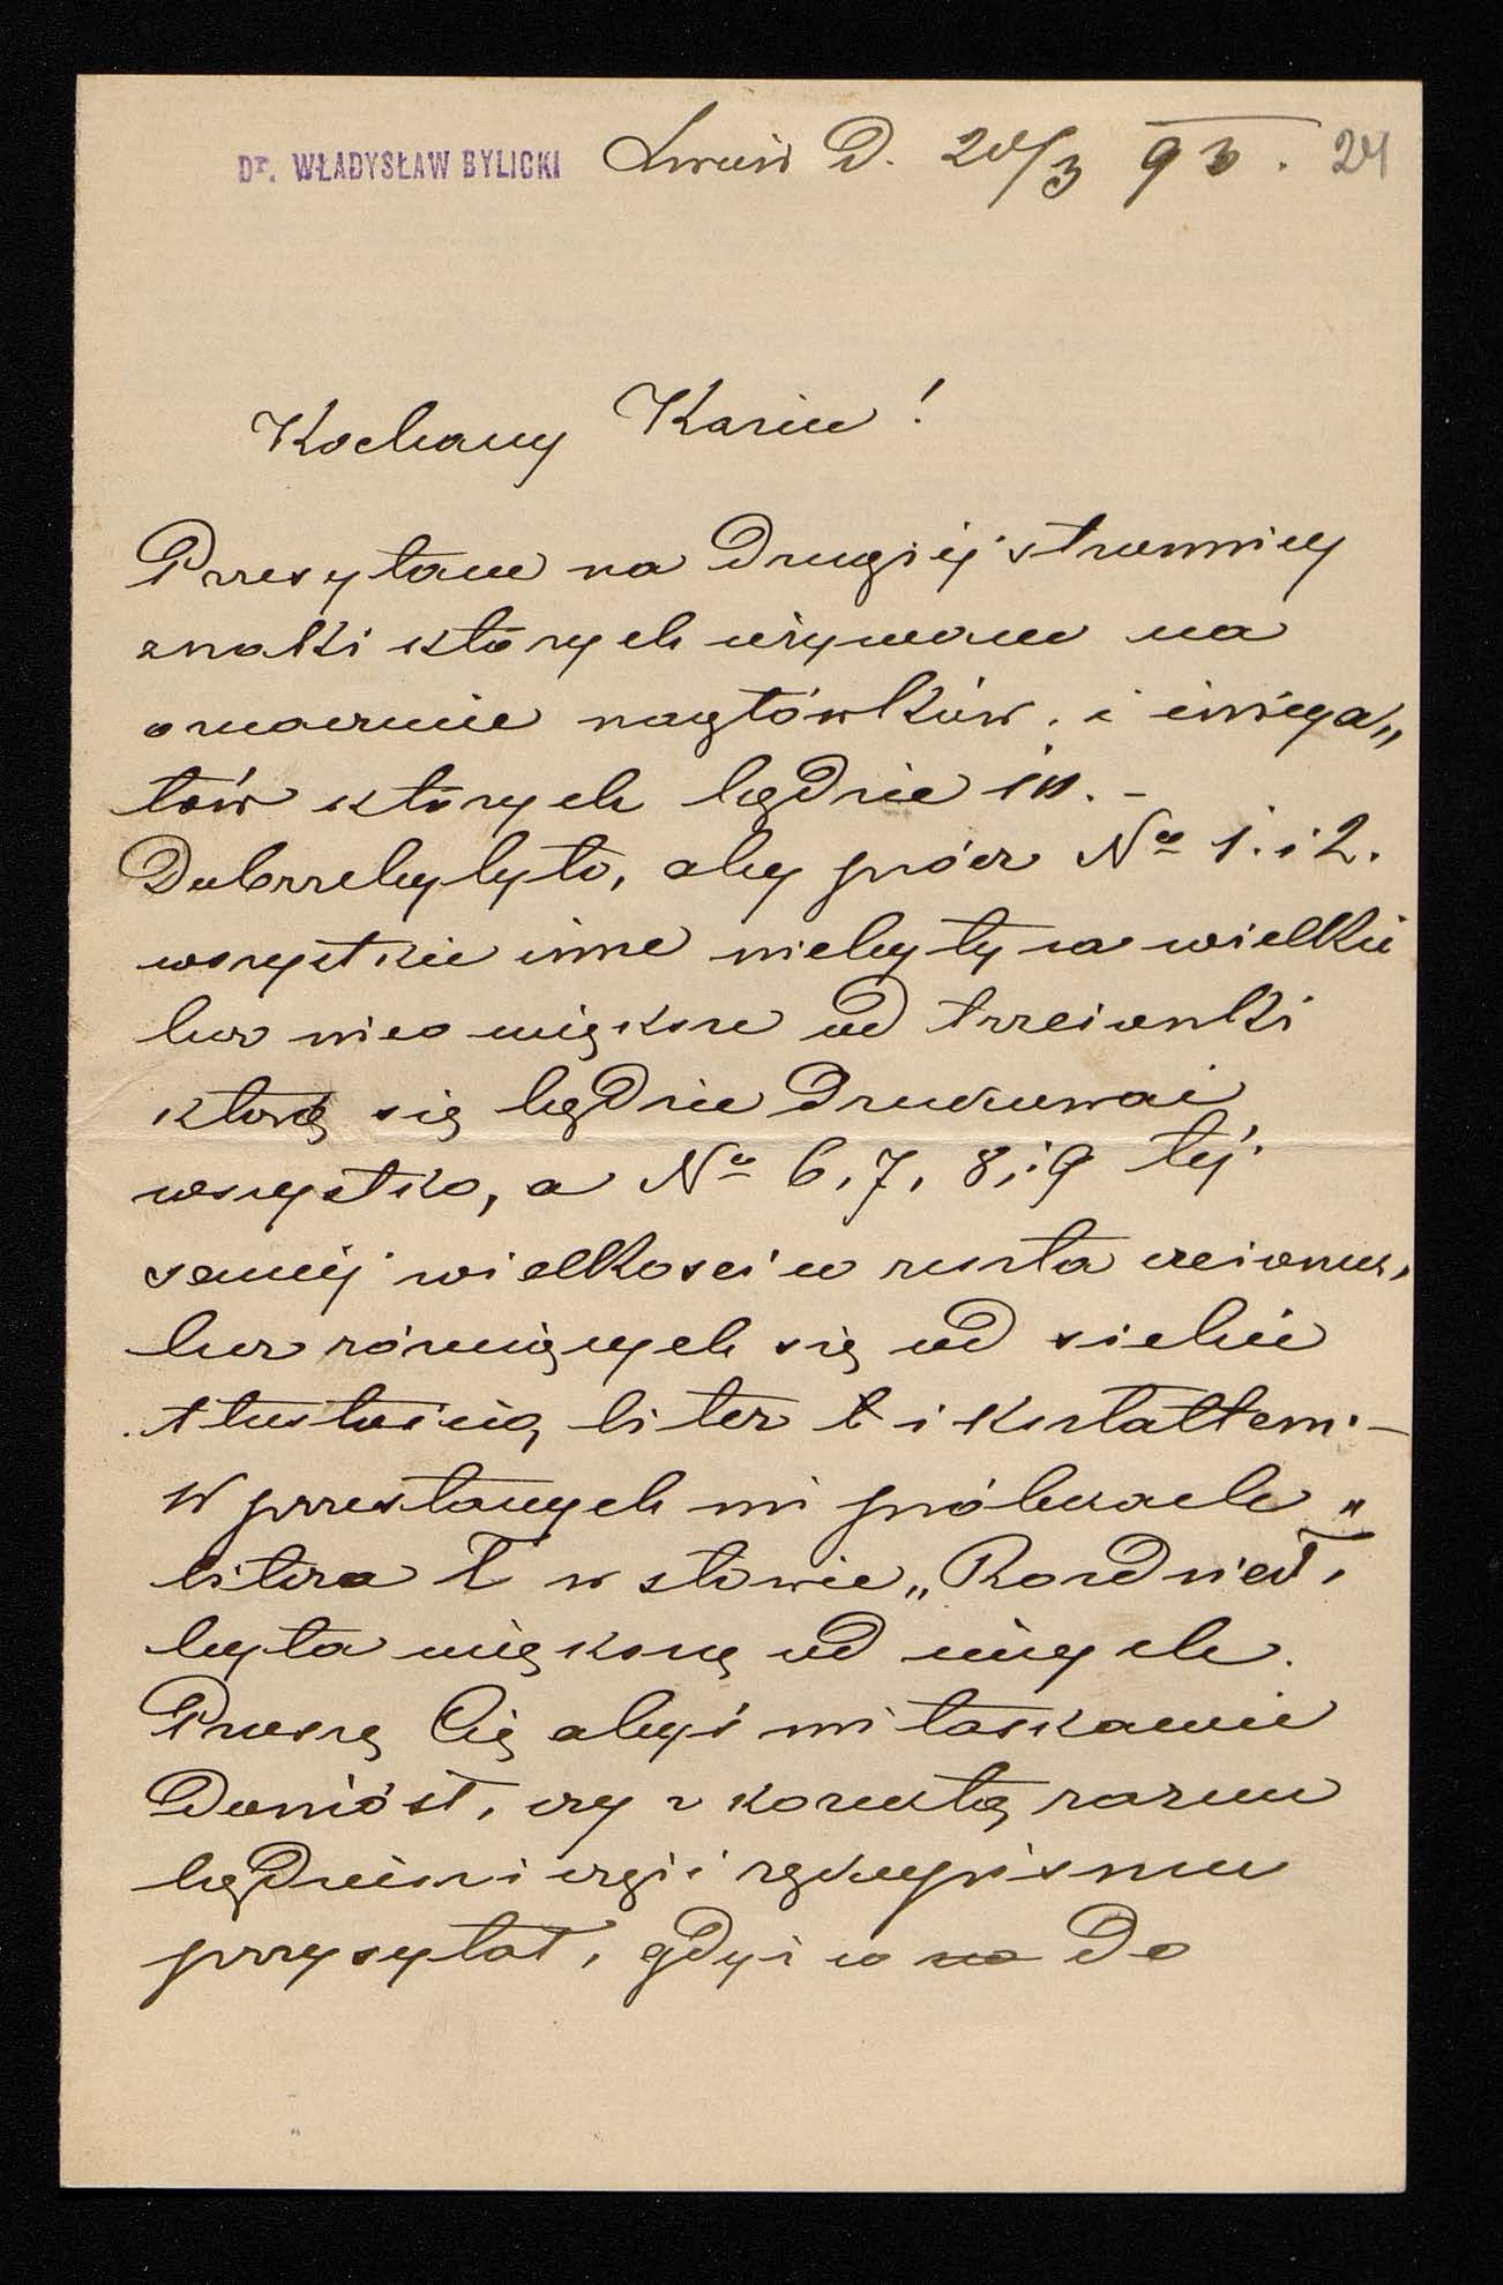 Dr. WŁADYSŁAW BYLICKI Lwów D. 20/3 93. 24
Kochany Kaziu!
Przesyłam na drugiéj stronnicy
znaki których używam na
oznaczenie nagłówków. i
tów których będzie 10. –
Dobrzebybyło, aby prócz No 1. i 2.
wszystkie inne niebyły za wielkie
lecz nieco większe od trzcionki
którą się będzie drukować
wszystko, a No 6, 7, 8 i 9 téj
saméj wielkości w reszta
lecz różniących się od siebie
tłustością liter i kształtem. –
W przesłanych mi próbkach
litera Ł w słowie „Rozdział"
była większą od innych.
Proszę Cię abyś mi łaskawie
doniósł, czy z korektą razem
będziesz i część rękopismu
przysyłał, gdyż w na do